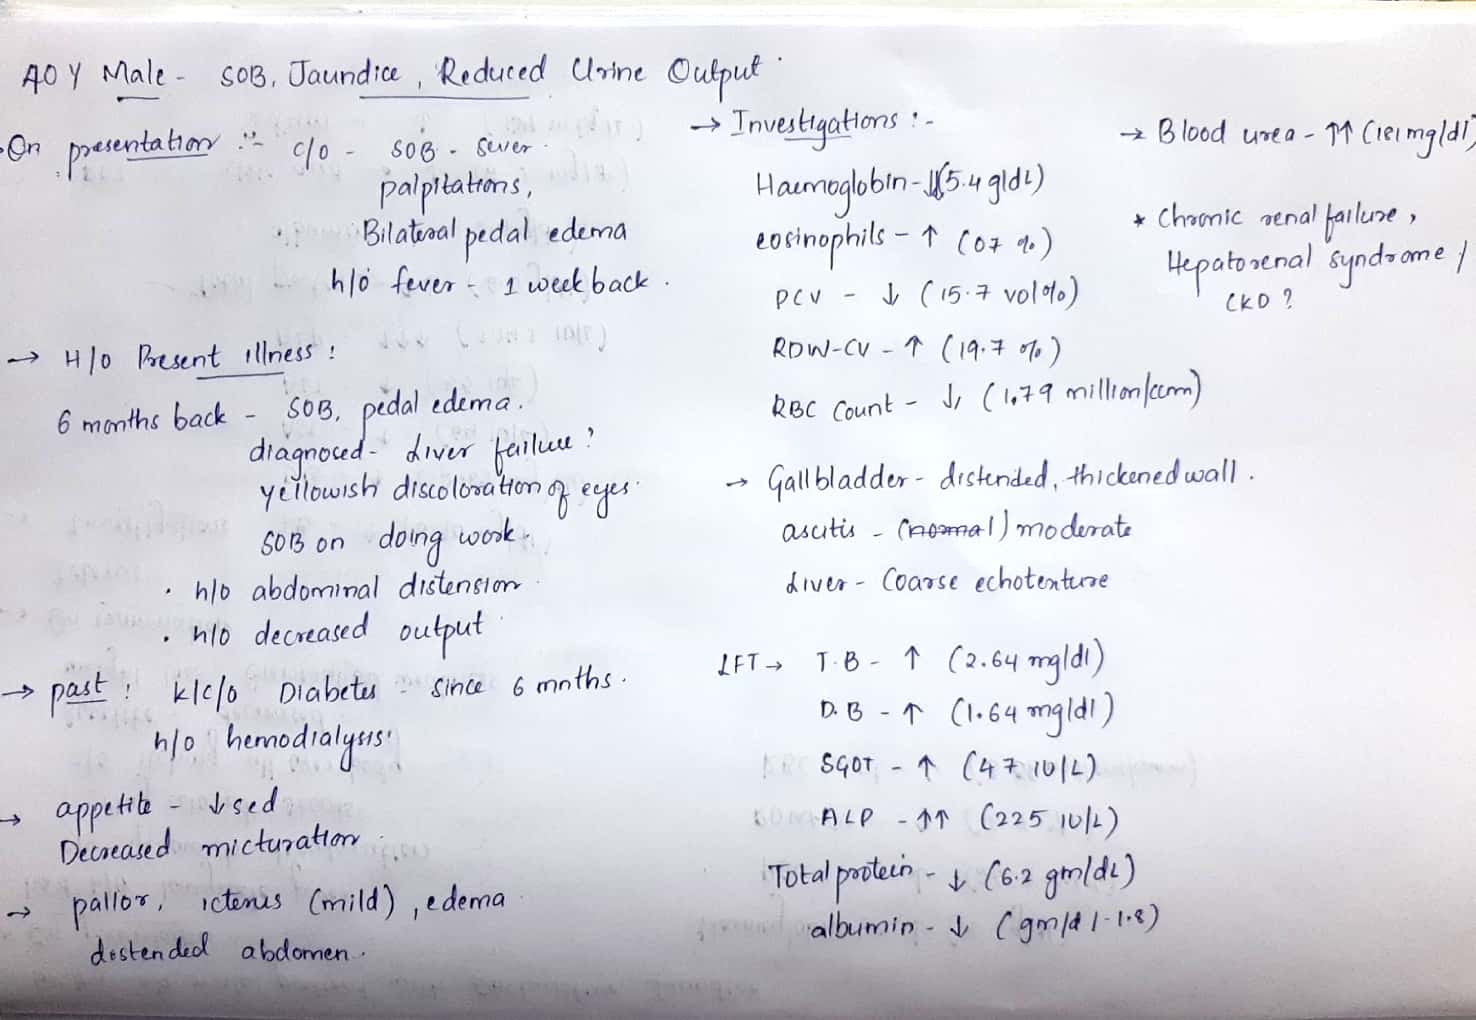 40 Y Male - SOB, Jaundice, Reduced Urine Output.
On presentation :- c/o - SOB - sever.
palpitations,
Bilateral pedal edema
h/o fever - 1 week back.
→ H/o Present illness :
6 months back - SOB, pedal edema.
diagnosed - Liver failure?
yellowish discoloration of eyes.
SOB on doing work.
. h/o abdominal distension.
. h/o decreased output.
→ past : k/c/o Diabetes - since 6 mnths.
h/o hemodialysis.
→ appetite - ↓sed
Decreased micturation.
→ pallor, icterus (mild), edema
distended abdomen.
→ Investigations :-
Haemoglobin - ↓↓(5.4 g/dL)
eosinophils - ↑ (07 %)
PCV - ↓ (15.7 vol%)
RDW-CV - ↑ (19.7 %)
RBC count - ↓, (1.79 million/cmm)
→ Gallbladder - distended, thickened wall.
ascitis - (normal) moderate
Liver - Coarse echotexture
LFT → T.B - ↑ (2.64 mg/dl)
D.B - ↑ (1.64 mg/dl)
SGOT - ↑ (47 IU/L)
ALP - ↑↑ (225 IU/L)
Total protein - ↓ (6.2 gm/dL)
albumin - ↓ (gm/dl - 1.8)
→ Blood urea - ↑↑ (181 mg/dl)
* Chronic renal failure,
Hepatorenal syndrome /
CKD ?